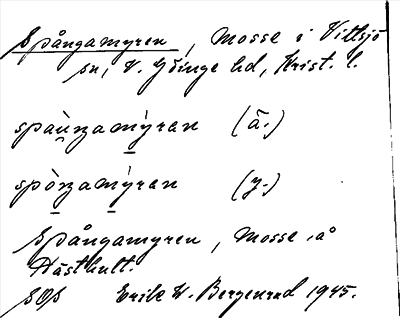 Spångamyren, mosse i Vittsjö
sn, V. Göinge hd, Krist. l.
spaùngamỳran (ä.)
spòngamỳran (y.)
Spångamyren, mosse å
Hästhult.
SOS Erik W. Bergenrud 1945.